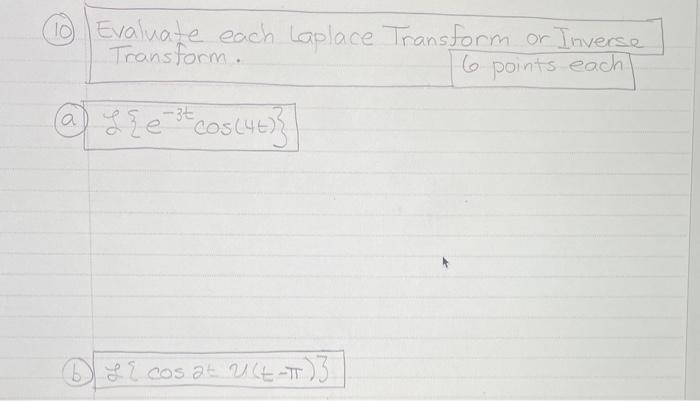 10 Evaluate each Laplace Transform or Inverse
Transform.
6 points each
a ℒ{e^{-3t} cos(4t)}
b ℒ{cos 2t 𝒰(t-π)}